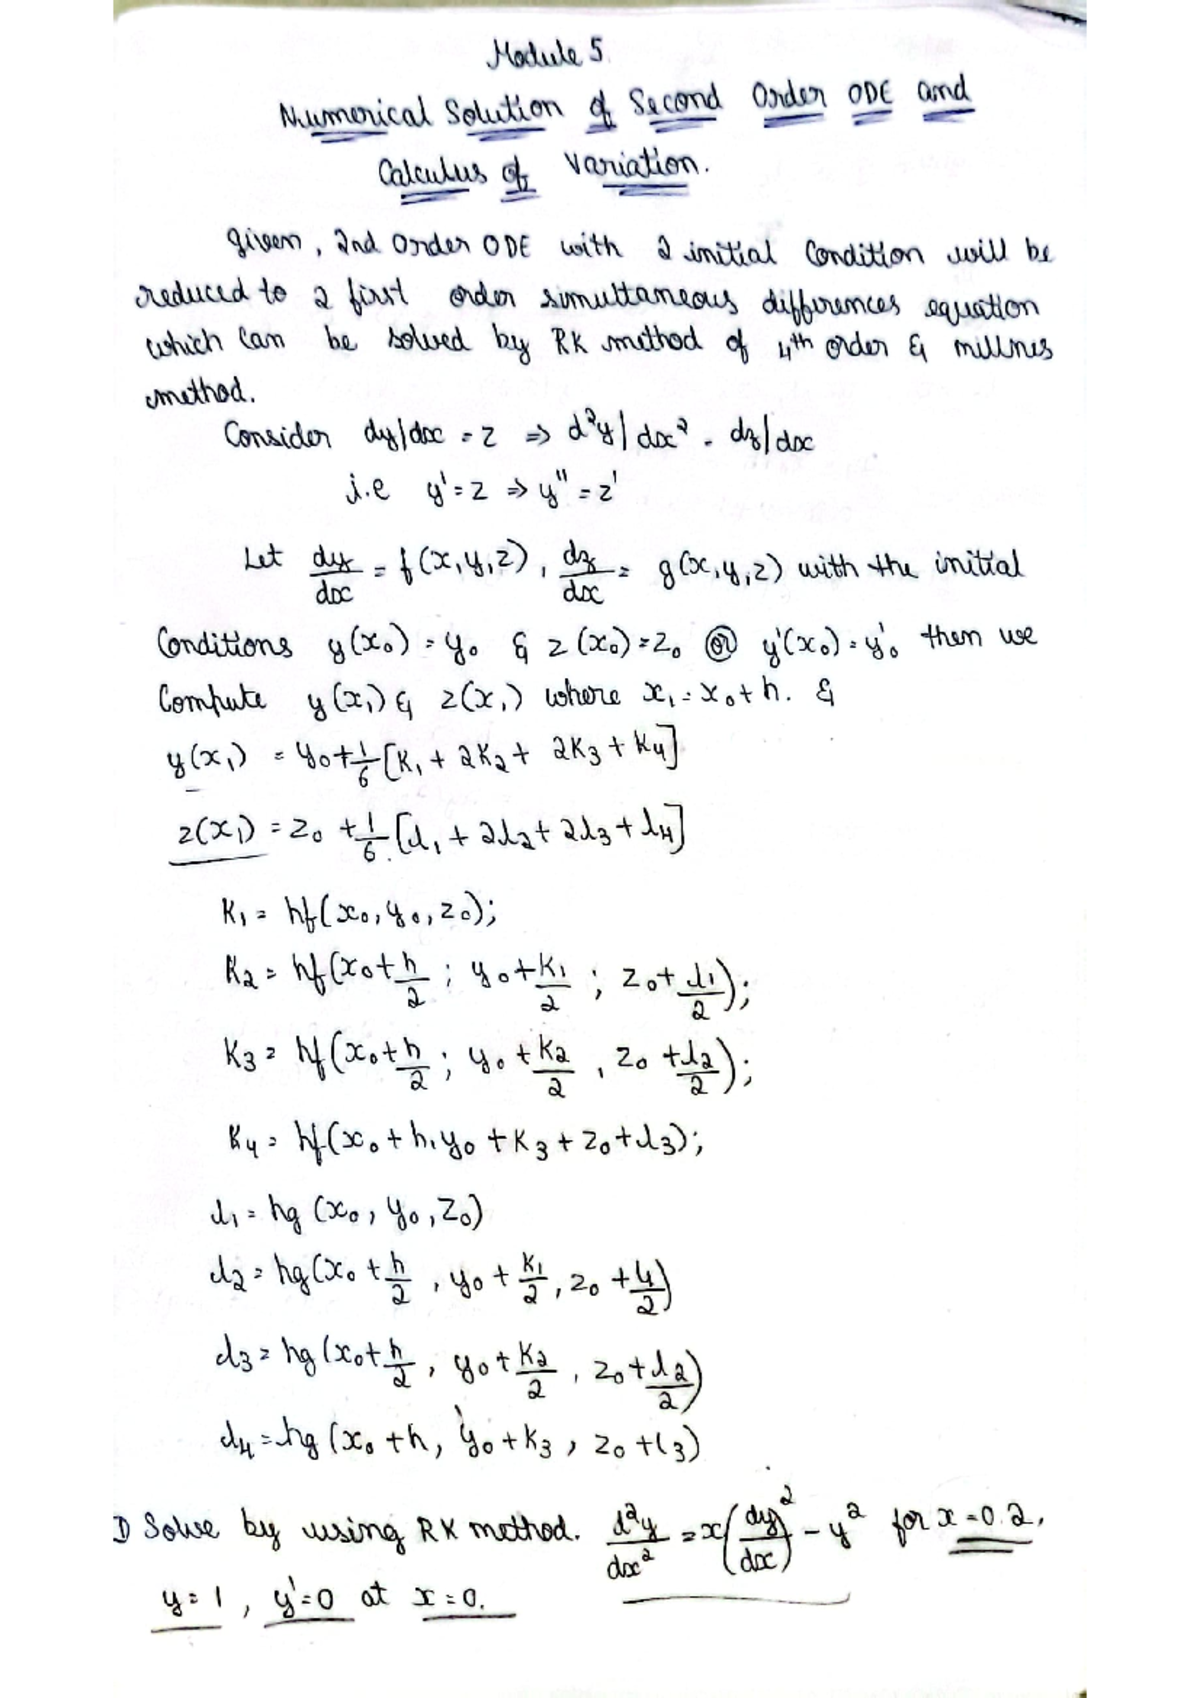 Module 5.
Numerical Solution of Second Order ODE and
Calculus of Variation.
given, 2nd Order ODE with 2 initial Condition will be
reduced to 2 first order simultaneous differences equation
which can be solved by RK method of 4th order & millnes
method.
Consider dy/dx = z ⇒ d²y/dx² = dz/dx
i.e y' = z ⇒ y'' = z'
Let dy/dx = f(x,y,z), dz/dx = g(x,y,z) with the initial
Conditions y(x₀) = y₀ & z(x₀) = z₀ (or) y'(x₀) = y'₀ then we
Compute y(x₁) & z(x₁) where x₁ = x₀ + h. &
y(x₁) = y₀ + 1/6 [K₁ + 2K₂ + 2K₃ + K₄]
z(x₁) = z₀ + 1/6 [l₁ + 2l₂ + 2l₃ + l₄]
K₁ = hf(x₀, y₀, z₀);
K₂ = hf(x₀ + h/2 ; y₀ + K₁/2 ; z₀ + l₁/2);
K₃ = hf(x₀ + h/2 ; y₀ + K₂/2 , z₀ + l₂/2);
K₄ = hf(x₀ + h, y₀ + K₃ + z₀ + l₃);
l₁ = hg (x₀, y₀, z₀)
l₂ = hg(x₀ + h/2 , y₀ + K₁/2 , z₀ + l₁/2)
l₃ = hg(x₀ + h/2 , y₀ + K₂/2 , z₀ + l₂/2)
l₄ = hg (x₀ + h, y₀ + K₃ , z₀ + l₃)
1) Solve by using RK method. d²y/dx² = x(dy/dx)² - y² for x = 0.2.
y = 1, y' = 0 at x = 0.